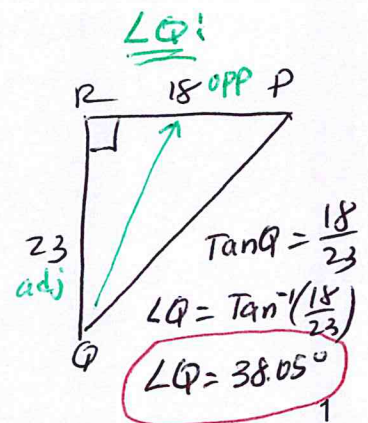 ∠Q:
R 18 opp P
23
adj
Q
TanQ = 18/23
∠Q = Tan⁻¹(18/23)
∠Q = 38.05°
1